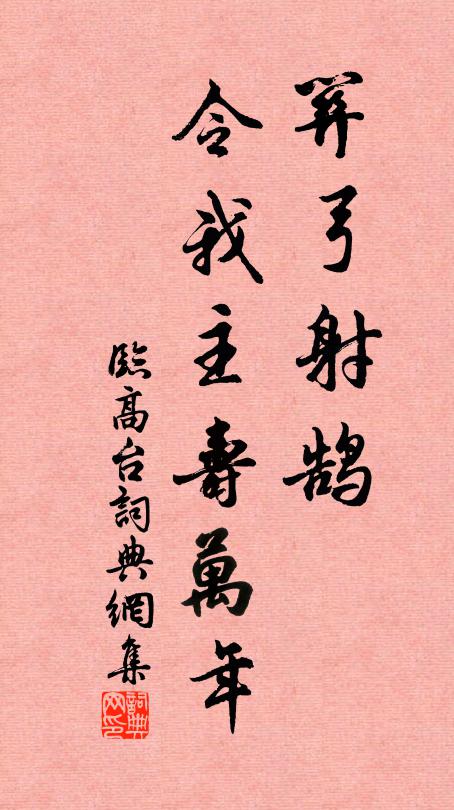 關弓射鵠
令我主壽萬年
臨高台詞典網集
詞典
网印